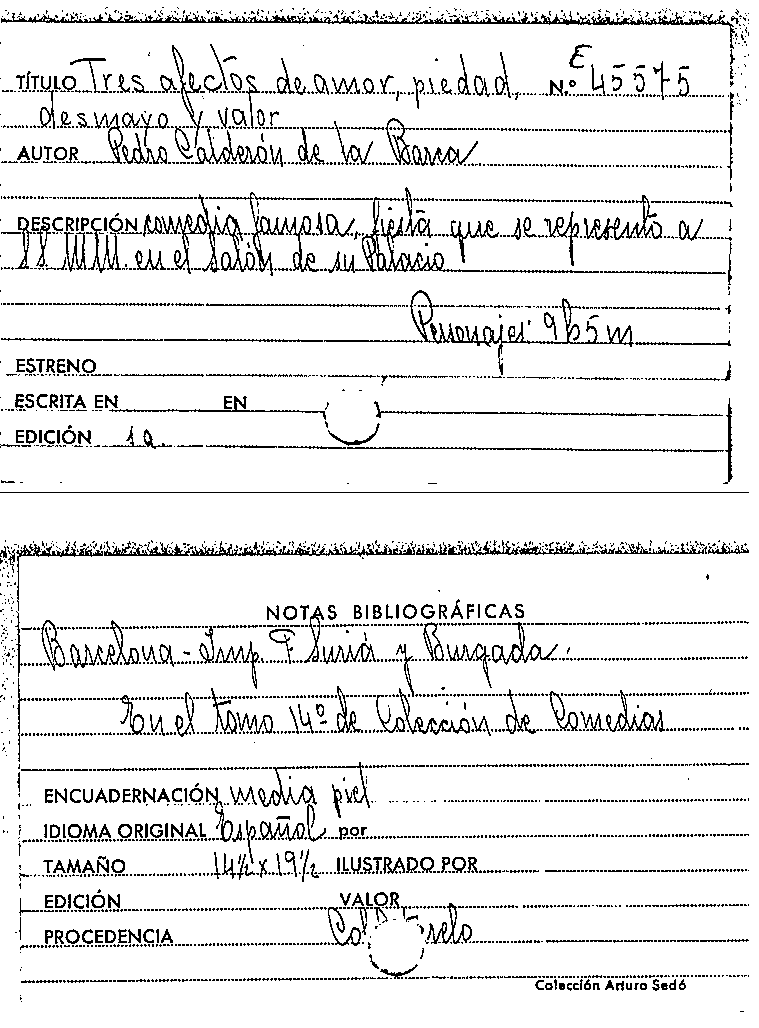 TÍTULO Tres afectos de amor, piedad, N.º E 45575
desmayo y valor
AUTOR Pedro Calderón de la Barca
DESCRIPCIÓN comedia famosa, fiesta que se represento a
SS MM. en el Salón de su Palacio
Personajes: 9h 5m
ESTRENO
ESCRITA EN EN
EDICIÓN 1a.
NOTAS BIBLIOGRÁFICAS
Barcelona - Imp. F Suriá y Burgada.
En el tomo 14º de Colección de Comedias
ENCUADERNACIÓN media piel
IDIOMA ORIGINAL Español por
TAMAÑO 14½ x 19½ ILUSTRADO POR
EDICIÓN VALOR
PROCEDENCIA Col.
Colección Arturo Sedó